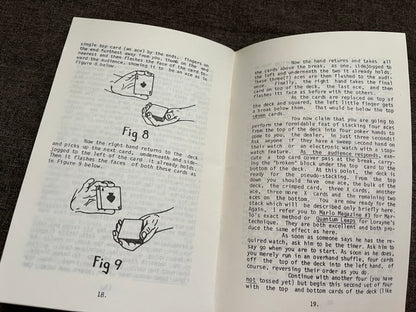 single top card (an ace) by the ends, fingers on
the end furthest away from you, thumb on the end
nearest and then flashes the face of the card to-
ward the audience, showing it to be an ace as in
Figure 8 below.
Fig 8
Now the right hand returns to the deck
and picks up the next card, underneath and side-
jogged to the left of the card it already holds.
Then it flashes the faces of both these cards as
in Figure 9 below:
Fig 9
18.
Now the hand returns and takes all
the cards above the break, as one, sidejogged to
the left and underneath the two it already holds.
These (three?) faces are then flashed to the audi-
ence. Finally, the right hand takes the final
card on top of the deck, the last ace, and then
shows its face as before with the others.
As the cards are replaced on top of
the deck and squared, the left little finger gets
a break below them. That would be below the top
seven cards.
You now claim that you are going to
perform the formidable feat of stacking four aces
from the top of the deck into four poker hands to
come to you, the dealer, in just three seconds.
Ask anyone if they have a sweep second hand on
their watch or an electronic watch with a stop-
watch feature. As the audience responds, exe-
cute a top card cover pass at the break, carry-
ing the "broken" block under the top card to the
bottom of the deck. At this point, the deck is
ready for the pseudo-stacking. From the top
down you should have one ace, the bulk of the
deck, the crimped card, three X cards, another
ace, three more X cards and the remaining two
aces on the bottom. You are now ready for the
stack which will be described only briefly here.
Again, I'd refer you to Marlo Magazine #3 for Mar-
lo's exact method or Quantum Leaps for Lorayne's
technique. They are both excellent and both pro-
duce the same effect in here.
As soon as someone says he has the re-
quired watch, ask him to be the timer. Ask him to
say go when you are to start. As soon as he does,
you merely run in an overhand shuffle, four cards
off the top of the deck into the left hand, of
course, reversing their order as you do.
Continue with another four (you have
not tossed yet) but begin this second set of four
with the top and bottom cards of the deck (like
19.